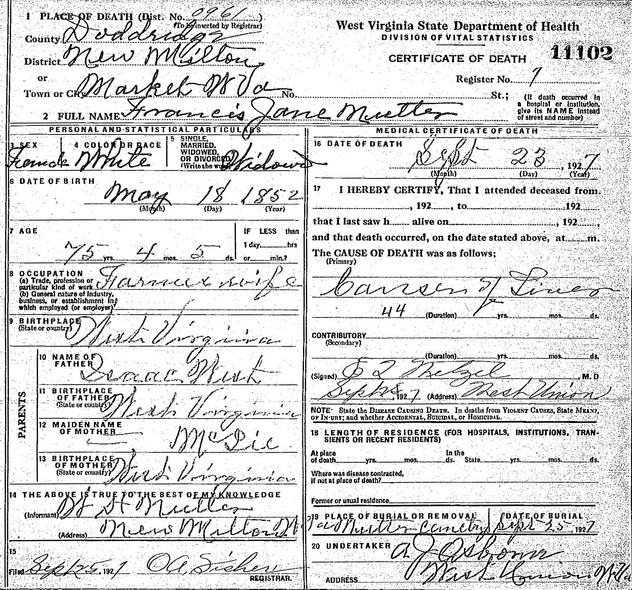 1 PLACE OF DEATH (Dist. No. 0961
(To be inserted by Registrar)
County Doddridge
District New Milton
or
Town or City Market W Va No. St.;
West Virginia State Department of Health
DIVISION OF VITAL STATISTICS
CERTIFICATE OF DEATH 11102
Register No. 7
(If death occurred in a hospital or institution, give its NAME instead of street and number)
2 FULL NAME Francis Jane Nutter
PERSONAL AND STATISTICAL PARTICULARS
3 SEX Female
4 COLOR OR RACE White
5 SINGLE, MARRIED, WIDOWED, OR DIVORCED (Write the word) Widow
6 DATE OF BIRTH
May 18 1852
(Month) (Day) (Year)
7 AGE
75 yrs. 4 mos. 5 ds.
IF LESS than
1 day, hrs
or min.?
8 OCCUPATION
(a) Trade, profession or particular kind of work Farmer wife
(b) General nature of industry, business, or establishment in which employed (or employer)
9 BIRTHPLACE
(State or country) West Virginia
PARENTS
10 NAME OF FATHER Isaac West
11 BIRTHPLACE OF FATHER (State or country) West Virginia
12 MAIDEN NAME OF MOTHER
13 BIRTHPLACE OF MOTHER (State or country) West Virginia
14 THE ABOVE IS TRUE TO THE BEST OF MY KNOWLEDGE
(Informant) Nutter
(Address) New Milton W
15
Filed Sept 25, 1927 O A Fisher
REGISTRAR.
MEDICAL CERTIFICATE OF DEATH
16 DATE OF DEATH
Sept 23, 1927
(Month) (Day) (Year)
17 I HEREBY CERTIFY, That I attended deceased from
, 192 , to 192
that I last saw h alive on , 192 ,
and that death occurred, on the date stated above, at m.
The CAUSE OF DEATH was as follows:
(Primary)
Canser of Liver
44
(Duration) yrs. mos. ds.
CONTRIBUTORY
(Secondary)
(Duration) yrs. mos. ds.
(Signed) Wetzel, M.D
Sept 25, 1927 (Address) West Union
NOTE: State the DISEASE CAUSING DEATH. In deaths from VIOLENT CAUSES, State MEANS OF INJURY; and whether ACCIDENTAL, SUICIDAL, or HOMICIDAL.
18 LENGTH OF RESIDENCE (FOR HOSPITALS, INSTITUTIONS, TRANSIENTS OR RECENT RESIDENTS)
At place of death yrs. mos. ds. In the State yrs. mos. ds.
Where was disease contracted, if not at place of death?
Former or usual residence
19 PLACE OF BURIAL OR REMOVAL DATE OF BURIAL
Nutter Sept 25 1927
20 UNDERTAKER A J Osborn
ADDRESS West Union W Va